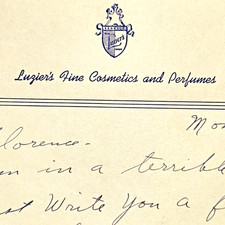 Luzier's
Luzier's Fine Cosmetics and Perfumes
Mo
lorence-
in a terrible
st Write You a f